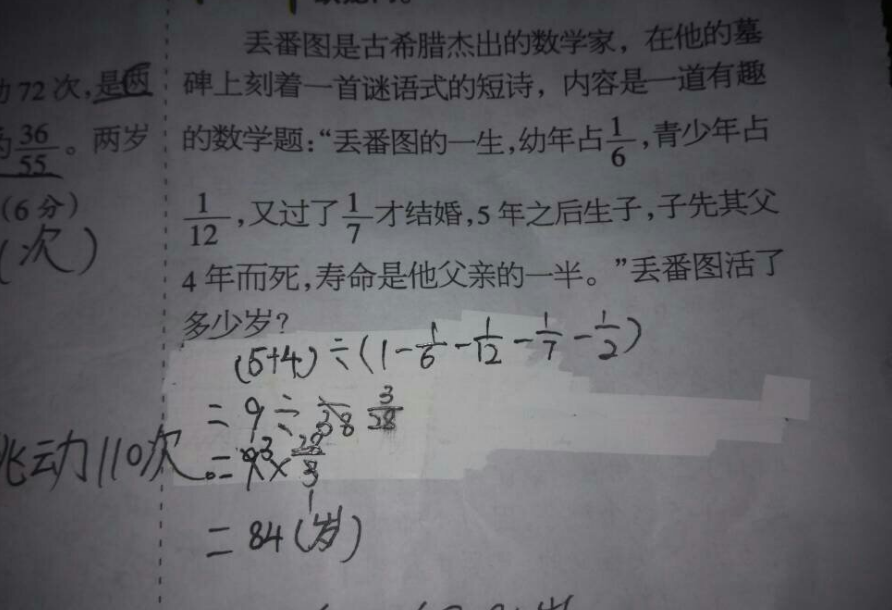 丢番图是古希腊杰出的数学家，在他的墓
动72次，是两
碑上刻着一首谜语式的短诗，内容是一道有趣
为36/55。两岁
的数学题：“丢番图的一生，幼年占1/6，青少年占
（6分）
1/12，又过了1/7才结婚，5年之后生子，子先其父
（次）
4年而死，寿命是他父亲的一半。”丢番图活了
多少岁？
(5+4)÷(1-1/6-1/12-1/7-1/2)
=9÷3/28
跳动110次。
=9³×28/3
1
=84(岁)